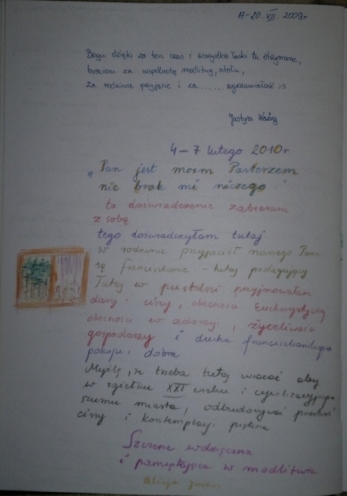 11-20. VII. 2009r
Bogu dzięki za ten czas i wszystkie łaski tu otrzymane,
braciom za wspólną modlitwę,
za rodzinne przyjęcie i za ...... wyrozumiałość :)
Justyna
4-7 lutego 2010r
"Pan jest moim Pasterzem
nie brak mi niczego"
to doświadczenie zabieram
z sobą
tego doświadczyłam tutaj
w rodzinie przyjaciół naszego Pana
św. Franciszka - tutaj
Tutaj w pustelni przyjmowałam
dary: ciszy, obecności Eucharystycznej
obecności w adoracji, życzliwości
gospodarzy i ducha franciszkańskiego
pokoju i dobra
Myślę, że trzeba tutaj wracać aby
w zgiełku XXI wieku i
miasta, odbudowywać przestrzeń
ciszy i kontemplacji
Szczerze wdzięczna
i pamiętająca w modlitwie
Alicja